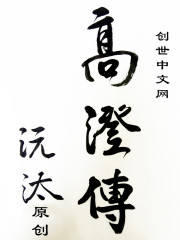 高澄傳
创世中文网
沅汰
原创